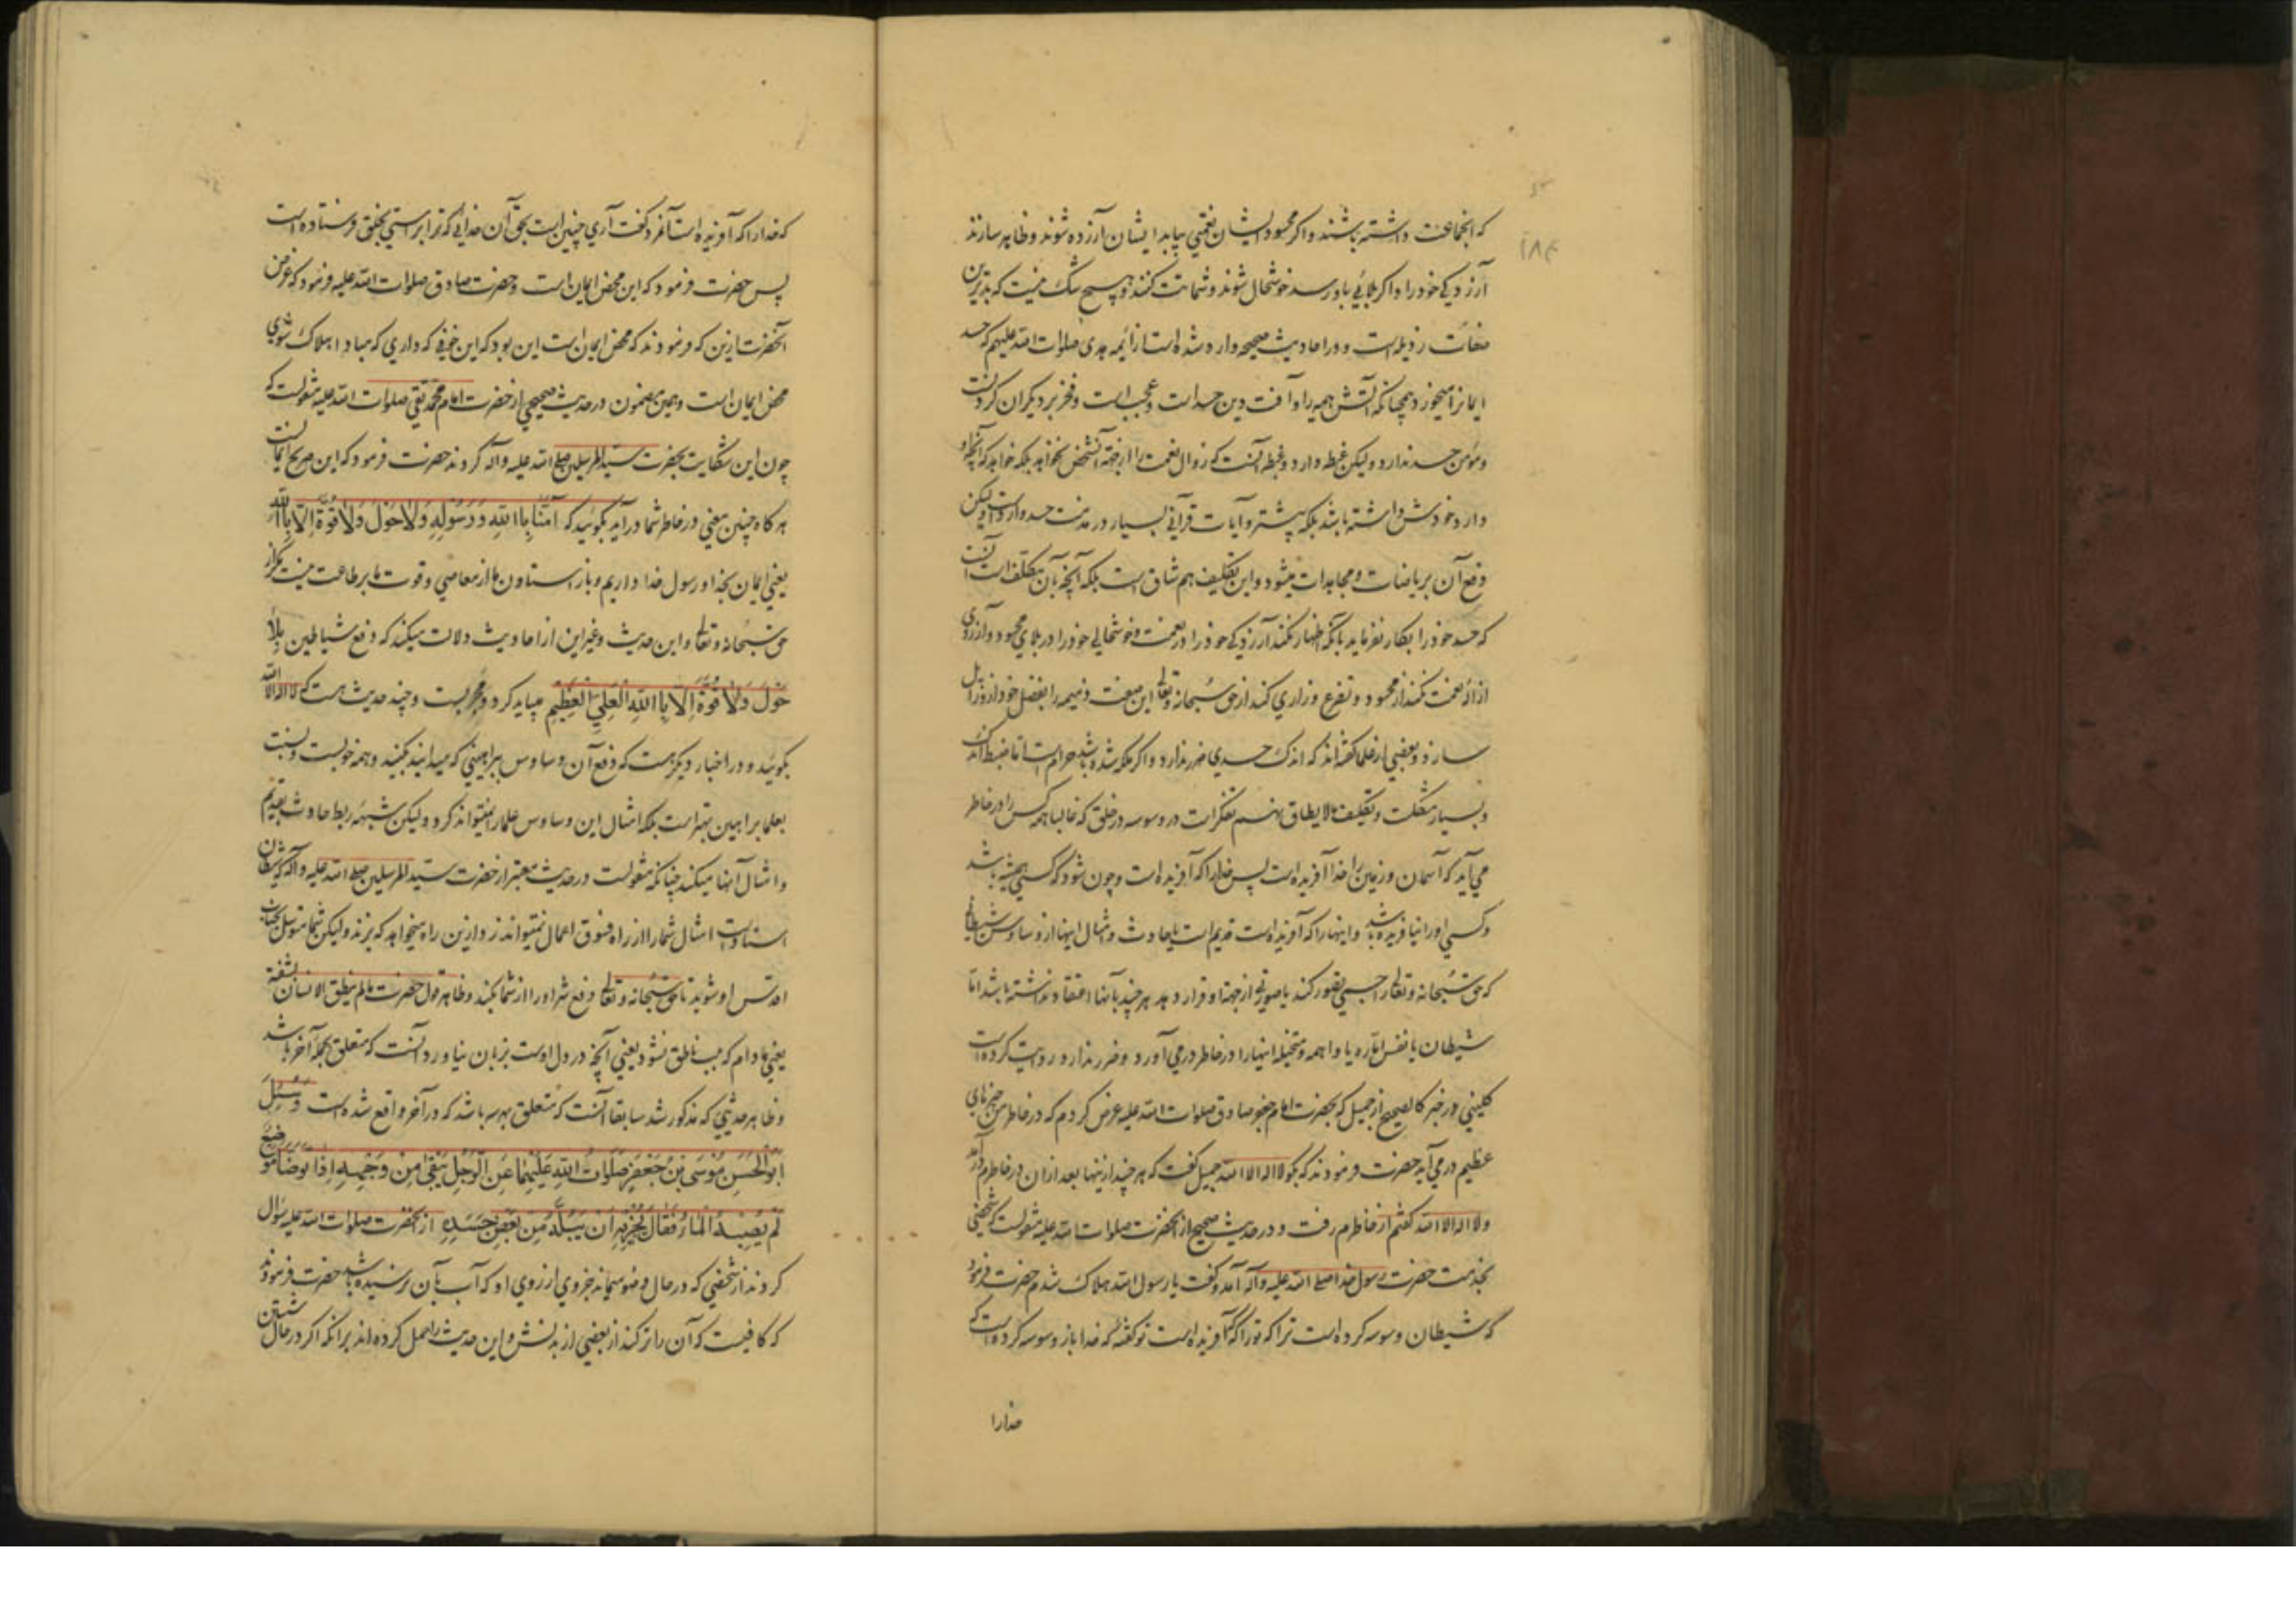 که انجماعت داشته باشند و اکر محسود ایشان نعمتی بیابد ایشان آزرده شوند و ظاهر سازند
آزردکی خود را و اکر بلائی باو رسد خوشحال شوند و شماتت کنند و هیچ شک نیست که بدترین
صفات رذیله است و در احادیث صحیحه وارد شده است از ائمه هدی صلوات الله علیهم که حسد
ایمانرا میخورد همچنانکه آتش هیمه را و آفت دین حسد است و عجب است و فخر بر دیکران کردنست
و مؤمن حسد ندارد و لیکن غبطه دارد و غبطه آنست که زوال نعمت را از آنشخص نخواهد بلکه خواهد که آنچه او
دارد خودش داشته باشد بلکه بیشتر و آیات قرآنی بسیار در مذمت حسد وارد است و لیکن
دفع آن بریاضات و مجاهدات میشود و این تکلیف هم شاق است بلکه آنچه بآن مکلف است آنست
که حسد خود را بکار نفرماید بآنکه اظهار نکند آزردکی خود را در نعمت و خوشحالی خود را در بلای محسود و آرزوی
ازاله نعمت نکند از محسود و تضرع و زاری کند از حق سبحانه و تعالی این صفت ذمیمه را بفضل خود ازو زایل
سازد و بعضی از علما کفته‌اند که اندک حسدی ضرر ندارد و اکر ملکه شده باشد حرام است اما ضبط اندک
و بسیار مشکلست و تکلیف مالایطاق نهم تفکرات در وسوسه در خلق که غالبا همه کس را در خاطر
می‌آید که آسمان و زمین را خدا آفریده است پس خدا را که آفریده است و چون شود که کسی همیشه باشد
و کسی او را نیافریده باشد و اینها را که آفریده است قدیم است یا حادث و امثال اینها از وساوس شیطانی
که حق سبحانه و تعالی را جسمی تصور کند یا صورتی از جهة او قرار دهد هر چند بآنها اعتقاد نداشته باشد اما
شیطان یا نفس اماره یا واهمه و متخیله اینها را در خاطر درمی‌آورد و ضرر ندارد و روایت کرده است
کلینی در خبر کالصحیح از جمیل که بحضرت امام جعفر صادق صلوات الله علیه عرض کردم که در خاطر من چیزهای
عظیم درمی‌آید حضرت فرمودند که بکو لا اله الا الله جمیل کفت که هر چند ازینها بعد از آن در خاطرم درآمد
و لا اله الا الله کفتم از خاطرم رفت و در حدیث صحیح از آنحضرت صلوات الله علیه منقولست که شخصی
بخدمت حضرت رسول خدا صلی الله علیه و آله آمد و کفت یا رسول الله هلاک شدم حضرت فرمود
که شیطان وسوسه کرده است ترا که تو را که آفریده است تو کفته که خدا باز وسوسه کرده است که
خدا را
که خدا را که آفریده است آنمرد کفت آری چنین است بحق آن خدائی که ترا براستی بخلق فرستاده است
پس حضرت فرمود که این محض ایمان است و حضرت صادق صلوات الله علیه فرمود که غرض
آنحضرت ازین که فرمودند که محض ایمان است این بود که این خوفی که داری که مبادا هلاک شوی
محض ایمان است و بهمین مضمون در حدیث صحیحی از حضرت امام محمد تقی صلوات الله علیه منقولست که
چون این شکایت بحضرت سید المرسلین صلی الله علیه و آله کردند حضرت فرمود که این صریح ایمانست
هر کاه چنین معنی در خاطر شما درآید بکوئید که آمَنَّا بِاللهِ وَ رَسُولِهِ وَلَا حَوْلَ وَلَا قُوَّةَ اِلَّا بِاللهِ
یعنی ایمان بخدا و رسول خدا داریم و باز استادن ما از معاصی و قوت ما بر طاعت نیست مکر از
حق سبحانه و تعالی و این حدیث و غیر این از احادیث دلالت میکند که دفع شیاطین بلا
حَوْلَ وَلَا قُوَّةَ اِلَّا بِاللهِ الْعَلِیِّ الْعَظِیْمِ میباید کرد و مجربست و چند حدیث هست که لا اله الا الله
بکوئید و در اخبار دیکر هست که دفع آن وساوس ببراهینی که میدانید بکنید و همه خوبست و نسبت
بعلما براهین بهتر است بلکه امثال این وساوس علما را نمیتواند کرد و لیکن شبهه ربط حادث بقدیم
و امثال آنها میکند چنانکه منقولست در حدیث معتبر از حضرت سید المرسلین صلی الله علیه و آله که شیطان
استاد است امثال شما را از راه فسوق اعمال نمیتواند زد ازین راه میخواهد که بزند و لیکن شما متوسل بجناب
اقدس او شوید تا حق سبحانه و تعالی دفع شر او را از شما بکند و ظاهر قول حضرت ما لم ینطق الانسان بشفة
یعنی مادام که بلب ناطق نشود یعنی آنچه در دل اوست بزبان نیاورد آنست که متعلق بجمله آخر باشد
و ظاهر حدیثی که مذکور شد سابقا آنست که متعلق بهر سه باشد که در آخر واقع شده است وَ سُئِلَ
اَبُو الْحَسَنِ مُوْسَی بْنُ جَعْفَرٍ صَلَوَاتُ اللهِ عَلَیْهِمَا عَنِ الرَّجُلِ یَبْقَی مِنْ وَجْهِهِ اِذَا تَوَضَّأَ مَوْضِعٌ
لَمْ یُصِبْهُ الْمَاءُ فَقَالَ یُجْزِیْهِ اَنْ یَبُلَّهُ مِنْ بَعْضِ جَسَدِهِ از آنحضرت صلوات الله علیه سؤال
کردند از شخصی که در حال وضو میماند جزوی از روی او که آب بآن نرسیده باشد حضرت فرمودند
که کافیست که آن را تر کند از بعضی از بدنش و این حدیث را حمل کرده‌اند بر آنکه اکر در حال شستن